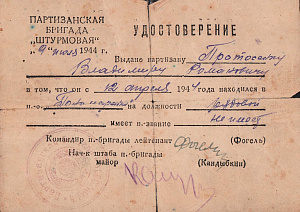 ПАРТИЗАНСКАЯ
БРИГАДА
„ШТУРМОВАЯ“
„9“ июля 1944 г.
УДОСТОВЕРЕНИЕ
Выдано партизану
Владимиру Романовичу
в том, что он с 12 апреля 1944 находился в
п.-о. на должности рядовой
Имеет п.-звание не имеет
Командир п.-бригады лейтенант (Фогель)
Нач-к штаба п.-бригады
майор (Кандыбкин)